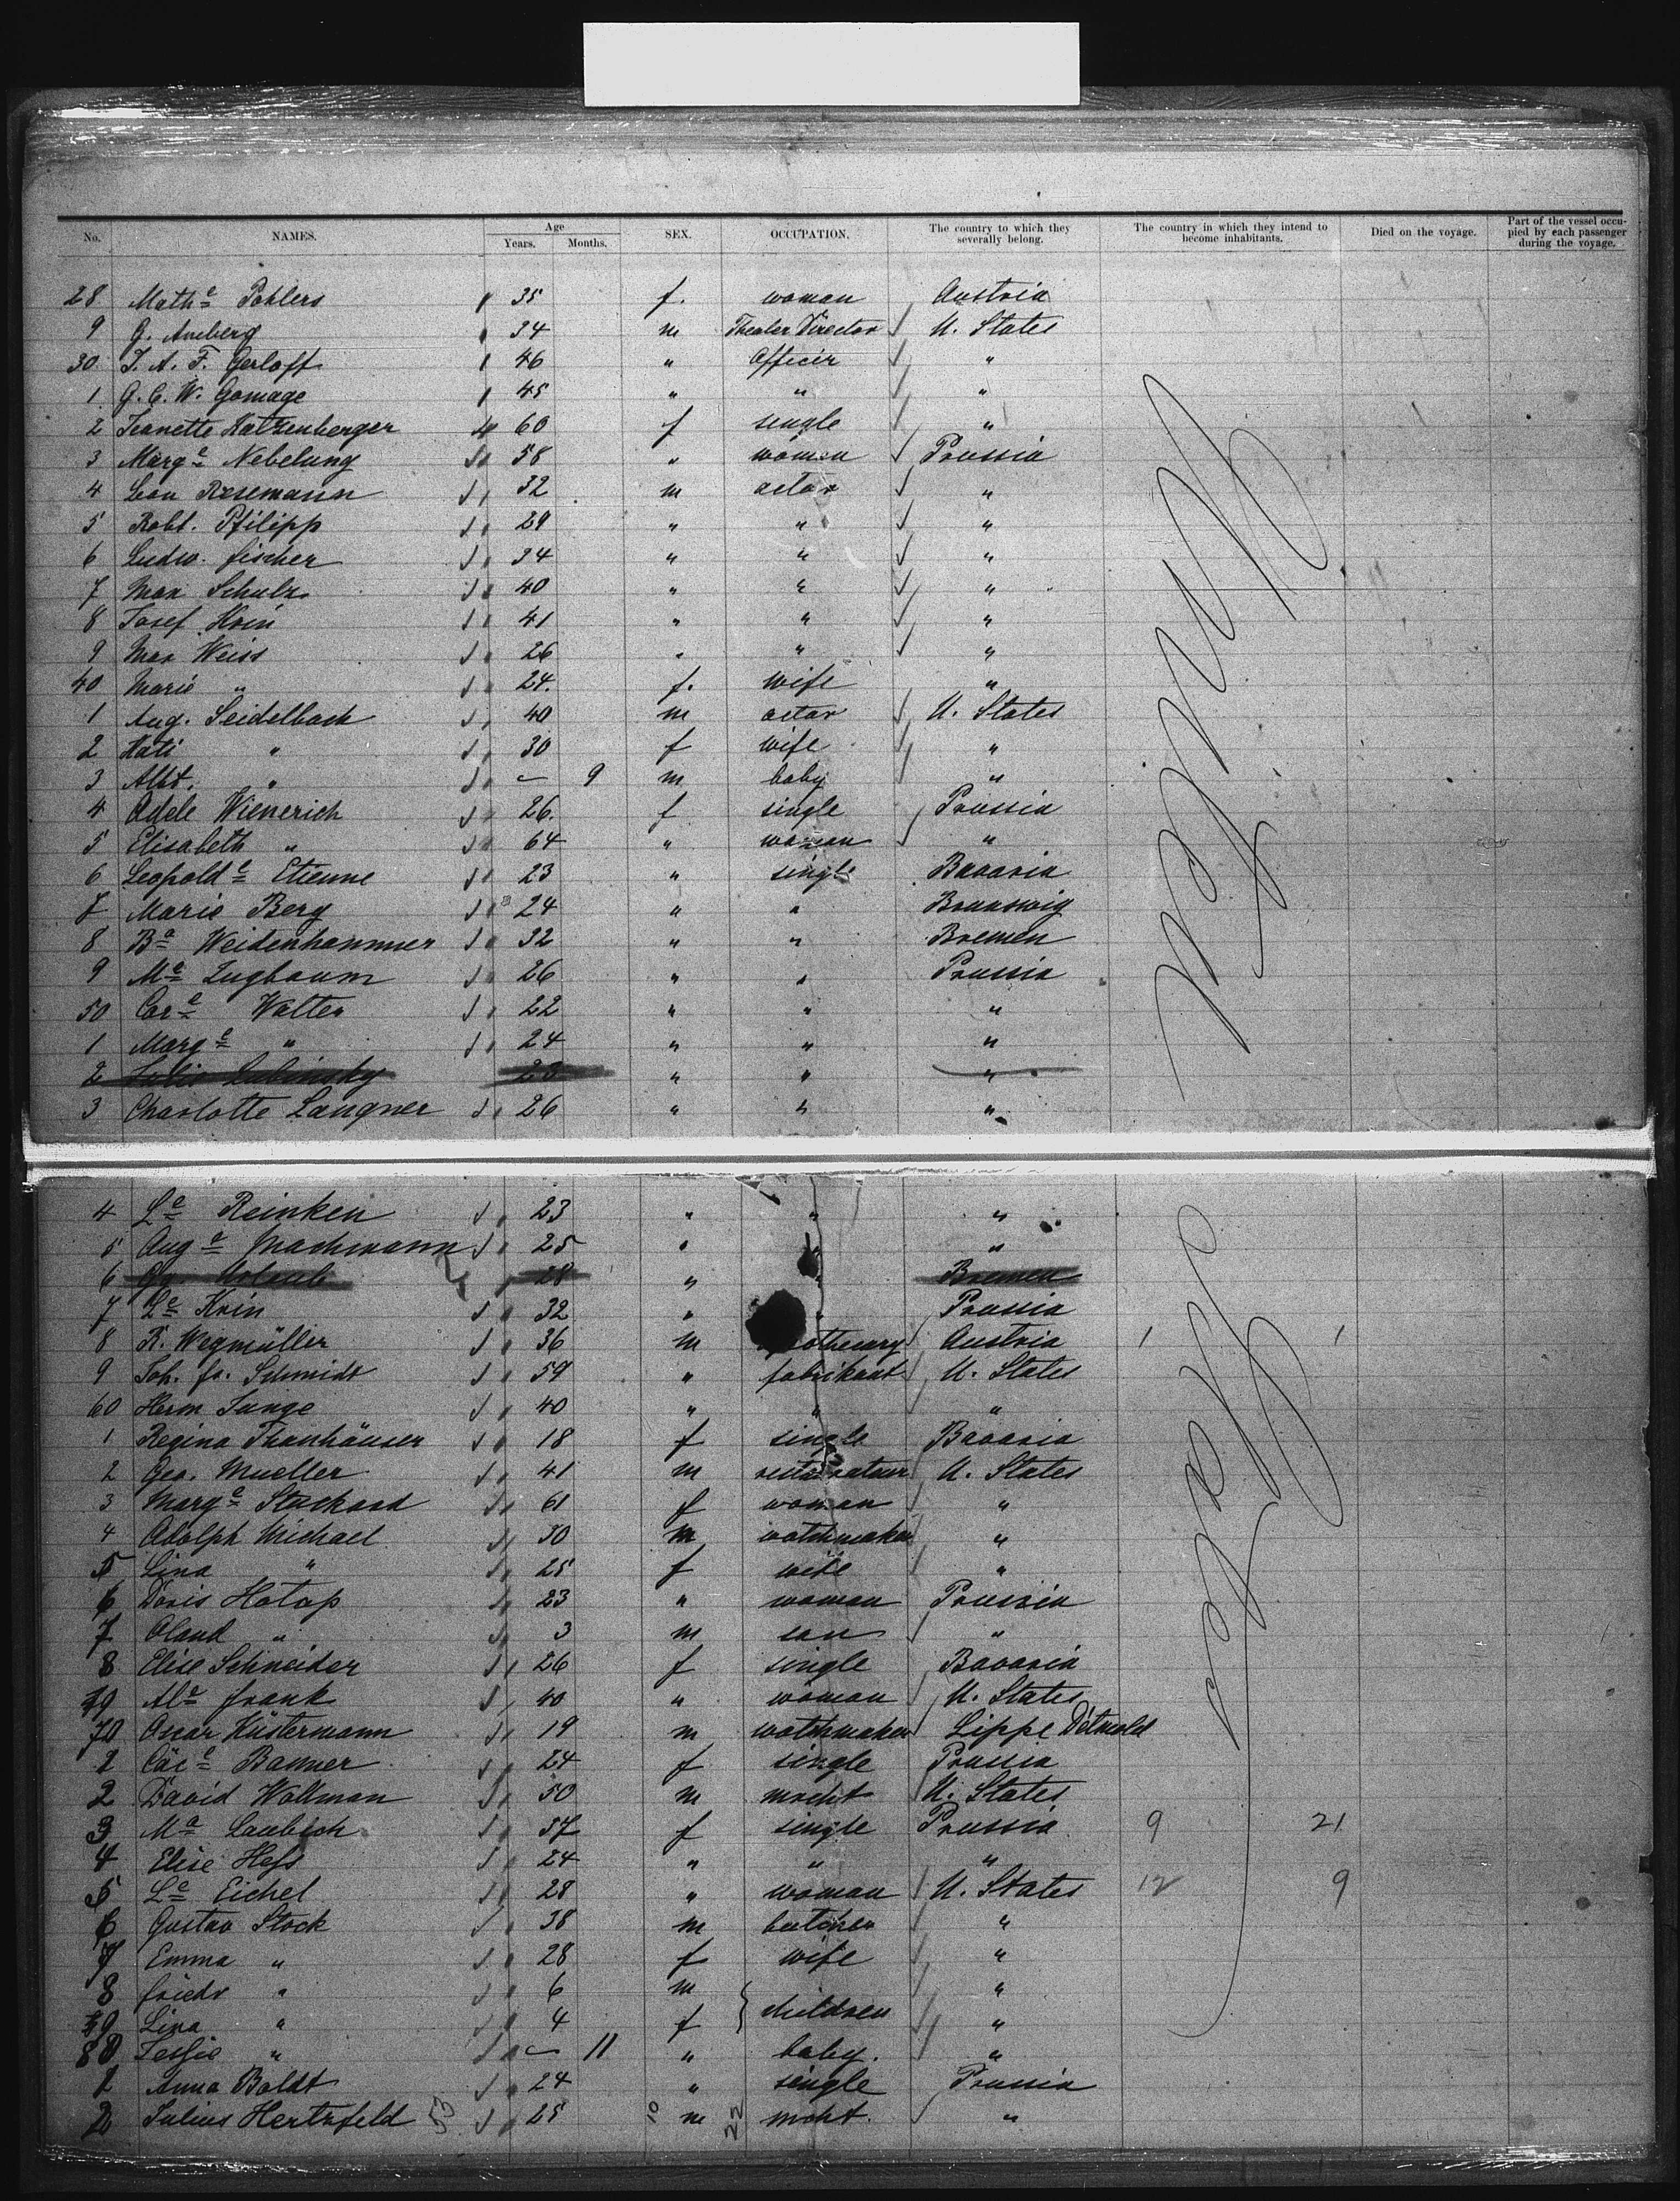 No. NAMES. Age Years. Months. SEX. OCCUPATION. The country to which they severally belong. The country in which they intend to become inhabitants. Died on the voyage. Part of the vessel occupied by each passenger during the voyage.
28 Mathe Pohlers 35 f. woman Austria
9 G. Amberg 34 m Theater Director U. States
30 J. A. F. Gerloff 46 " Officer "
1 G. C. W. Gomage 45 " " "
2 Jeanette Katzenberger 60 f single "
3 Marge Nebelung 58 " woman Prussia
4 Leon Resemann 32 m actor "
5 Robt. Pfilipp 29 " " "
6 Ludw. Fischer 34 " " "
7 Max Schulz 40 " " "
8 Josef Krin 41 " " "
9 Max Weiss 26 " " "
40 Marie " 24. f. wife "
1 Aug. Seidelbach 40 m actor U. States
2 Kati " 30 f wife "
3 Albt. " — 9 m baby "
4 Adele Wienerich 26. f single Prussia
5 Elisabeth " 64 " woman "
6 Leopolde Etienne 23 " single Bavaria
7 Marie Berg 24 " " Brunswig
8 Ba Weidenhammer 32 " " Bremen
9 Ma Zugbaum 26 " " Prussia
50 Care Walter 22 " " "
1 Marge " 24 " " "
2 Lubinsky 23 " " "
3 Charlotte Langner 26 " " "
4 Le Reinken 23 " " "
5 Auga Machmann 25 " " "
6 28 " " Bremen
7 Le Krin 32 " " Prussia
8 R. Wegmüller 36 m apothecary Austria 1 1
9 Joh. Fr. Schmidt 59 " fabrikant U. States
60 Herm Junge 40 " " "
1 Regina Thanhäuser 18 f single Bavaria
2 Geo. Mueller 41 m restaurateur U. States
3 Marge Stuckard 61 f woman "
4 Adolph Michael 30 m watchmaker "
5 Lina " 25 f wife "
6 Doris Hotop 23 " woman Prussia
7 Oland " 3 m son "
8 Elise Schneider 26 f single Bavaria
9 Ale Frank 40 " woman U. States
70 Oscar Küstermann 19 m watchmaker Lippe Detmold
1 Cäce Banner 24 f single Prussia
2 David Wollman 50 m mercht U. States
3 Ma Laubisch 37 f single Prussia 9 21
4 Elise Hefs 24 " " "
5 Le Eichel 28 " woman U. States 12 9
6 Gustav Stock 38 m butcher "
7 Emma " 28 f wife "
8 Friedr " 6 m children "
9 Lina " 4 f "
80 Jessie " — 11 " baby. "
1 Anna Boldt 24 " single Prussia
2 Julius Hertzfeld 53 25 10 m 22 mcht. "